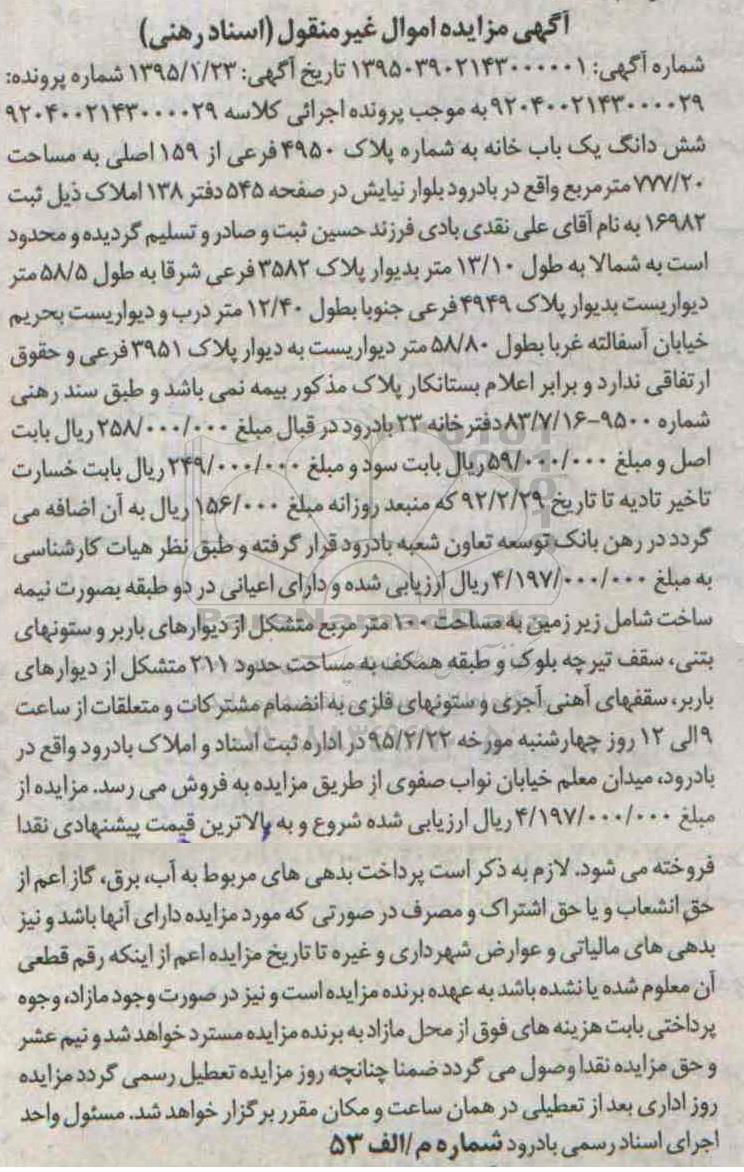 آگهی مزایده اموال غیرمنقول (اسناد رهنی)
شماره آگهی: ۱۳۹۵۰۳۹۰۲۱۴۳۰۰۰۰۰۱ تاریخ آگهی: ۱۳۹۵/۱/۲۳ شماره پرونده:
۹۲۰۴۰۰۲۱۴۳۰۰۰۰۲۹ به موجب پرونده اجرائی کلاسه ۹۲۰۴۰۰۲۱۴۳۰۰۰۰۲۹
شش دانگ یک باب خانه به شماره پلاک ۴۹۵۰ فرعی از ۱۵۹ اصلی به مساحت
۷۷۷/۲۰ مترمربع واقع در بادرود بلوار نیایش در صفحه ۵۴۵ دفتر ۱۳۸ املاک ذیل ثبت
۱۶۹۸۲ به نام آقای علی نقدی بادی فرزند حسین ثبت و صادر و تسلیم گردیده و محدود
است به شمالا به طول ۱۳/۱۰ متر بدیوار پلاک ۳۵۸۲ فرعی شرقا به طول ۵۸/۵ متر
دیواریست بدیوار پلاک ۴۹۴۹ فرعی جنوبا بطول ۱۲/۴۰ متر درب و دیواریست بحریم
خیابان آسفالته غربا بطول ۵۸/۸۰ متر دیواریست به دیوار پلاک ۳۹۵۱ فرعی و حقوق
ارتفاقی ندارد و برابر اعلام بستانکار پلاک مذکور بیمه نمی باشد و طبق سند رهنی
شماره ۹۵۰۰-۸۳/۷/۱۶ دفترخانه ۲۳ بادرود در قبال مبلغ ۲۵۸/۰۰۰/۰۰۰ ریال بابت
اصل و مبلغ ۵۹/۰۰۰/۰۰۰ ریال بابت سود و مبلغ ۲۴۹/۰۰۰/۰۰۰ ریال بابت خسارت
تاخیر تادیه تا تاریخ ۹۲/۲/۲۹ که منبعد روزانه مبلغ ۱۵۶/۰۰۰ ریال به آن اضافه می
گردد در رهن بانک توسعه تعاون شعبه بادرود قرار گرفته و طبق نظر هیات کارشناسی
به مبلغ ۴/۱۹۷/۰۰۰/۰۰۰ ریال ارزیابی شده و دارای اعیانی در دو طبقه بصورت نیمه
ساخت شامل زیر زمین به مساحت ۱۰۰ متر مربع متشکل از دیوارهای باربر و ستونهای
بتنی، سقف تیرچه بلوک و طبقه همکف به مساحت حدود ۲۱۱ متشکل از دیوارهای
باربر، سقفهای آهنی آجری و ستونهای فلزی به انضمام مشترکات و متعلقات از ساعت
۹ الی ۱۲ روز چهارشنبه مورخه ۹۵/۲/۲۲ در اداره ثبت اسناد و املاک بادرود واقع در
بادرود، میدان معلم خیابان نواب صفوی از طریق مزایده به فروش می رسد. مزایده از
مبلغ ۴/۱۹۷/۰۰۰/۰۰۰ ریال ارزیابی شده شروع و به بالاترین قیمت پیشنهادی نقدا
فروخته می شود. لازم به ذکر است پرداخت بدهی های مربوط به آب، برق، گاز اعم از
حق انشعاب و یا حق اشتراک و مصرف در صورتی که مورد مزایده دارای آنها باشد و نیز
بدهی های مالیاتی و عوارض شهرداری و غیره تا تاریخ مزایده اعم از اینکه رقم قطعی
آن معلوم شده یا نشده باشد به عهده برنده مزایده است و نیز در صورت وجود مازاد، وجوه
پرداختی بابت هزینه های فوق از محل مازاد به برنده مزایده مسترد خواهد شد و نیم عشر
و حق مزایده نقدا وصول می گردد ضمنا چنانچه روز مزایده تعطیل رسمی گردد مزایده
روز اداری بعد از تعطیلی در همان ساعت و مکان مقرر برگزار خواهد شد. مسئول واحد
اجرای اسناد رسمی بادرود شماره م/الف ۵۳